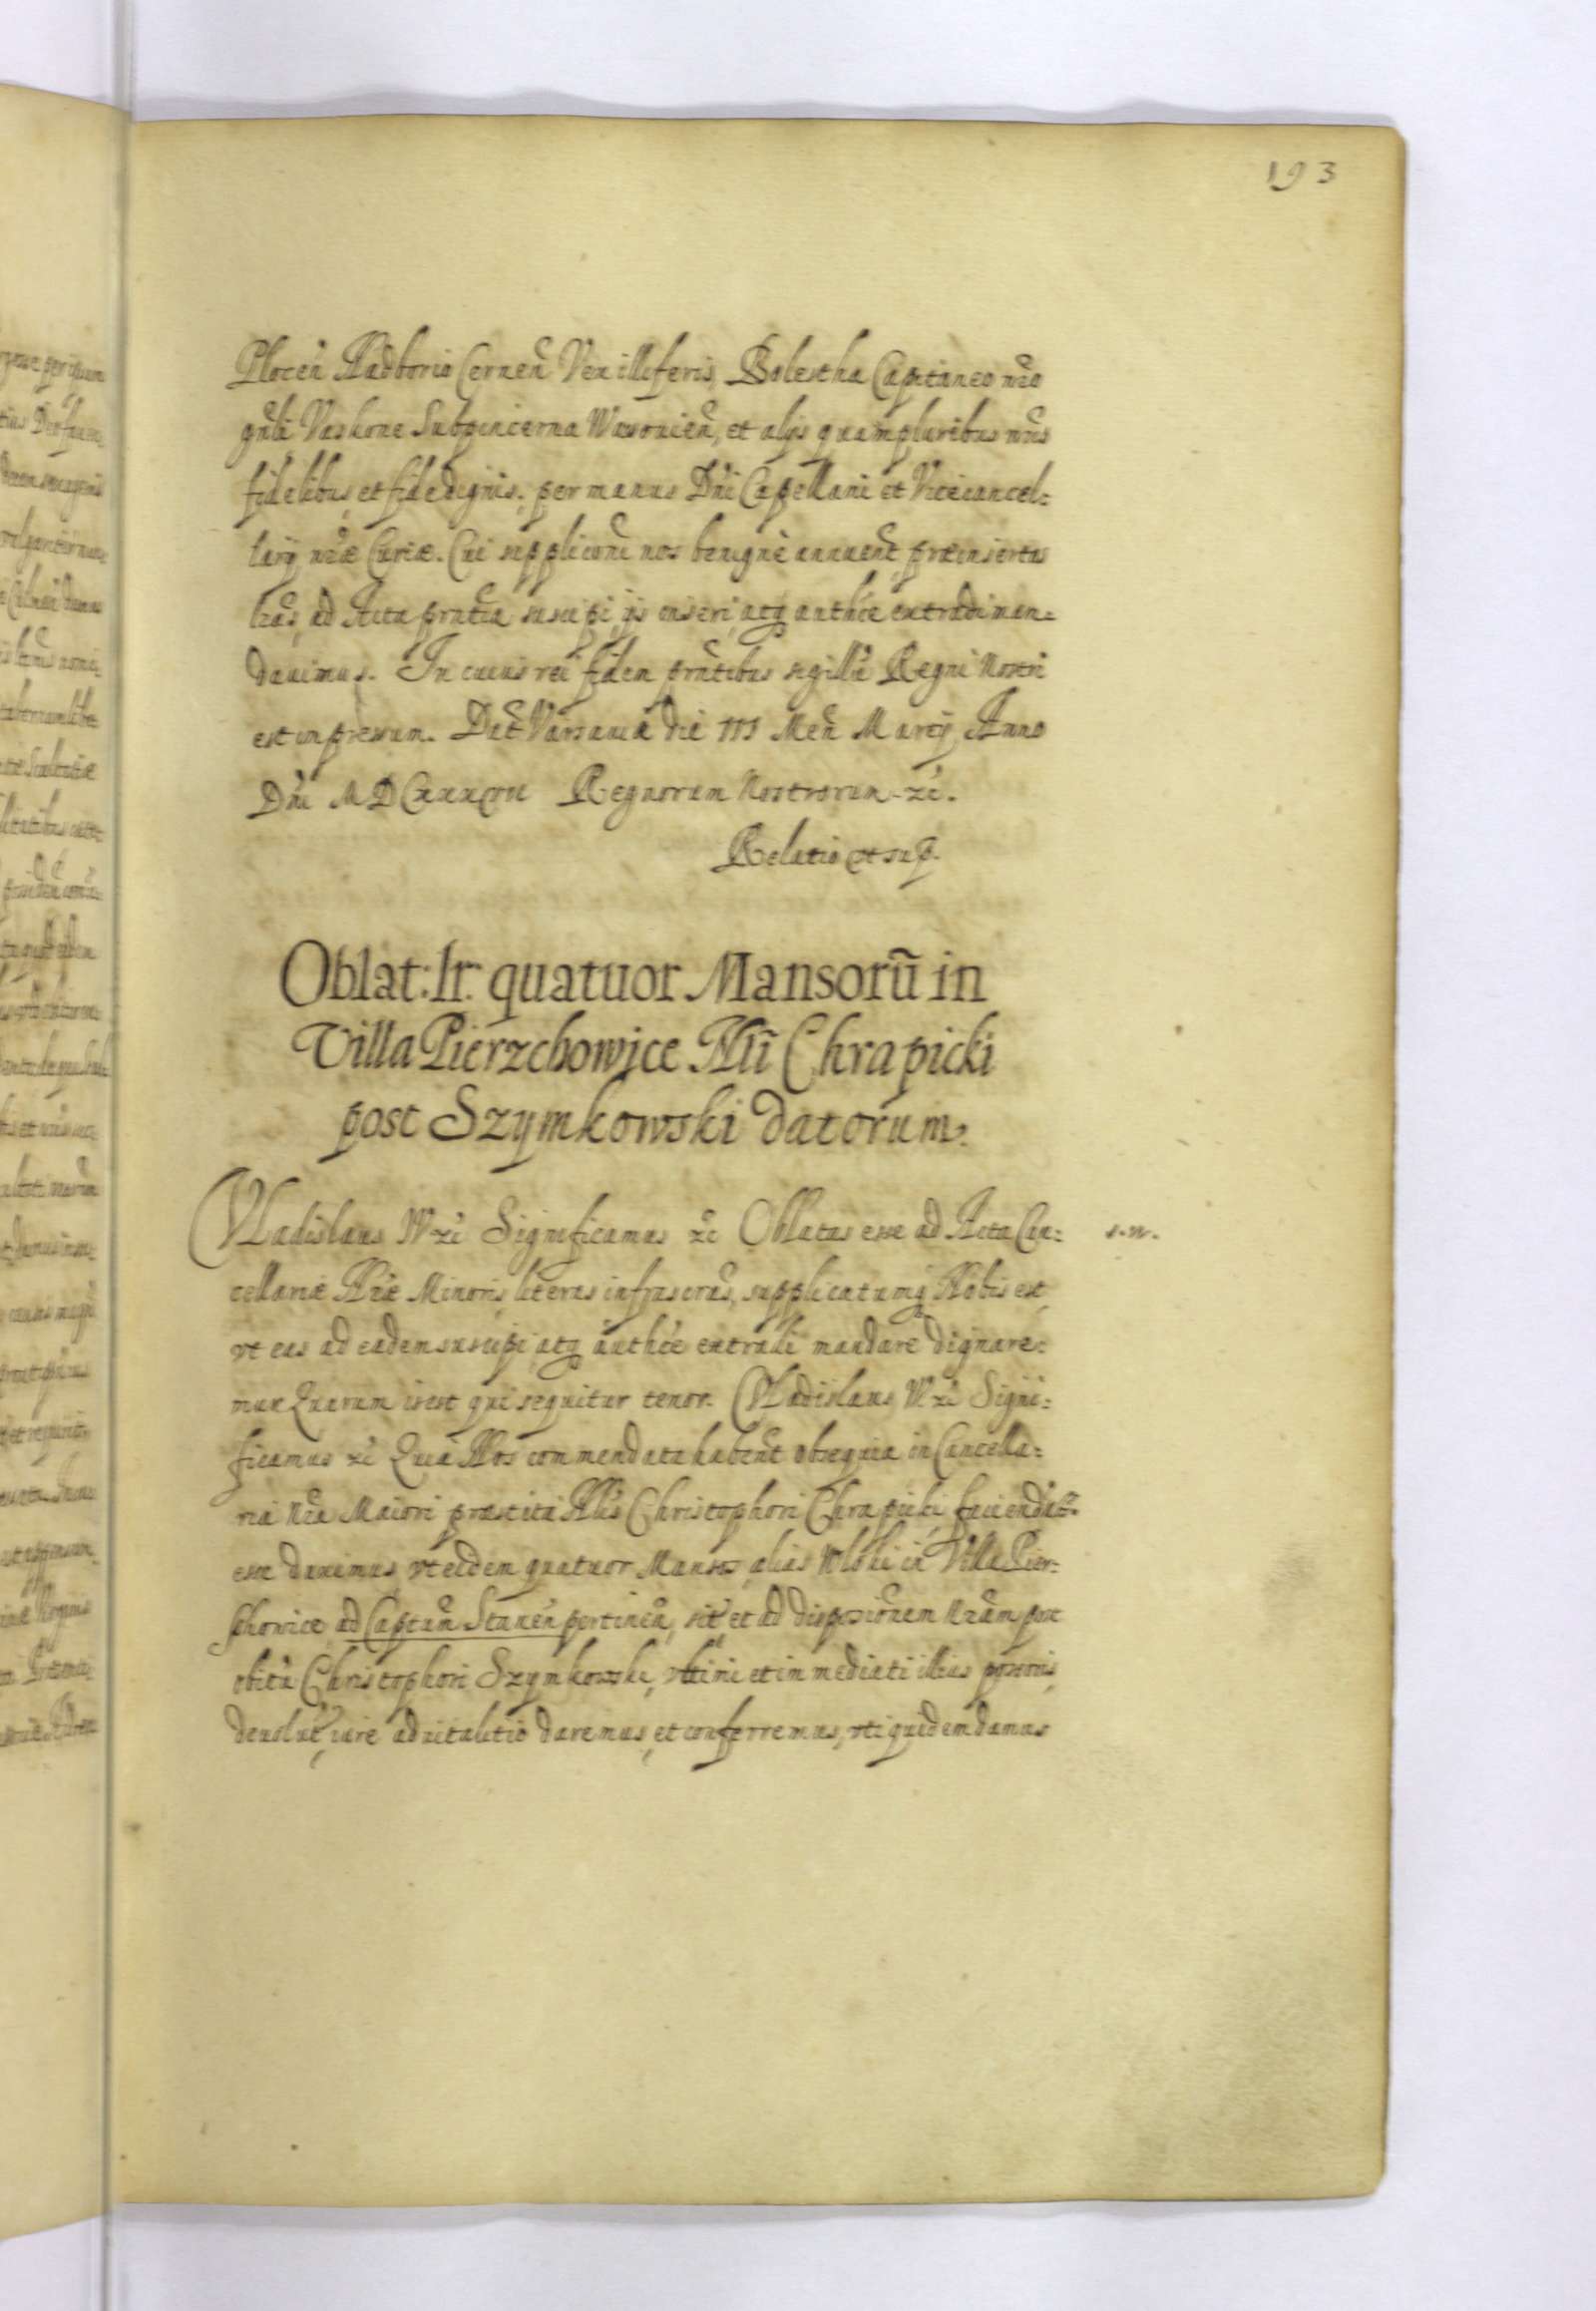 193
Plocen̄ Nadborio Cernen̄ Vexilliferis, Bolestha Capitaneo nr̄o
gn̄li Vaskone Subpincerna Wisonien̄, et alijs quampluribus nr̄is
fidelibus, et fidedignis. per manus Dn̄i Capellani et Vicecancel:
larij nr̄æ Curiæ. Cui supplicōni nos benigne annuen̄t, præinsertas
lrās, ad Acta prn̄tia suscipi, ijs inseri, atq̨ authēe extradi man:
dauimus. In cuius rei fidem prn̄tibus sigillū Regni Nostri
est impressum. Dat̄ Varsauiæ die III Men̄ Martij Anno
Dn̄i Regnorum Nostrorum zc̄.
Relatio vt sup.
Oblat: lr: quatuor Mansorū in
Villa Pierzchowice Nli Chrapicki
post Szymkowski datorum.
Vladislaus IV zc̄ Significamus zc̄ Oblatas esse ad Acta Can:
cellariæ Nr̄æ Minoris, literas infrascrās, supplicatumq̨ Nobis est
vt eas ad eadem suscipi, atq̨ authēe extradi mandare dignare:
mur Quarum is est qui sequitur tenor. Vladislaus IV zc̄ Signi:
ficamus zc̄ Quia Nos commendata haben̄t obsequia in Cancella:
ria Nr̄a Maiori præstita Nlis Christophori Chrapicki, faciend
esse duximus vt eidem quatuor Mansos, alias Wloki in Villa Pier:
schowice, ad Captūm Stanen̄ pertinen̄, sit̄, et ad disposiōnem Nr̄am post
obitū Christophori Szymkowski, vltimi et immediati illius possoris,
deuolut̄, iure aduitalitio daremus, et conferremus, vti quidem damus